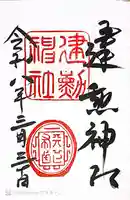 建勲神社
建勲
神社
令和八年三月三日